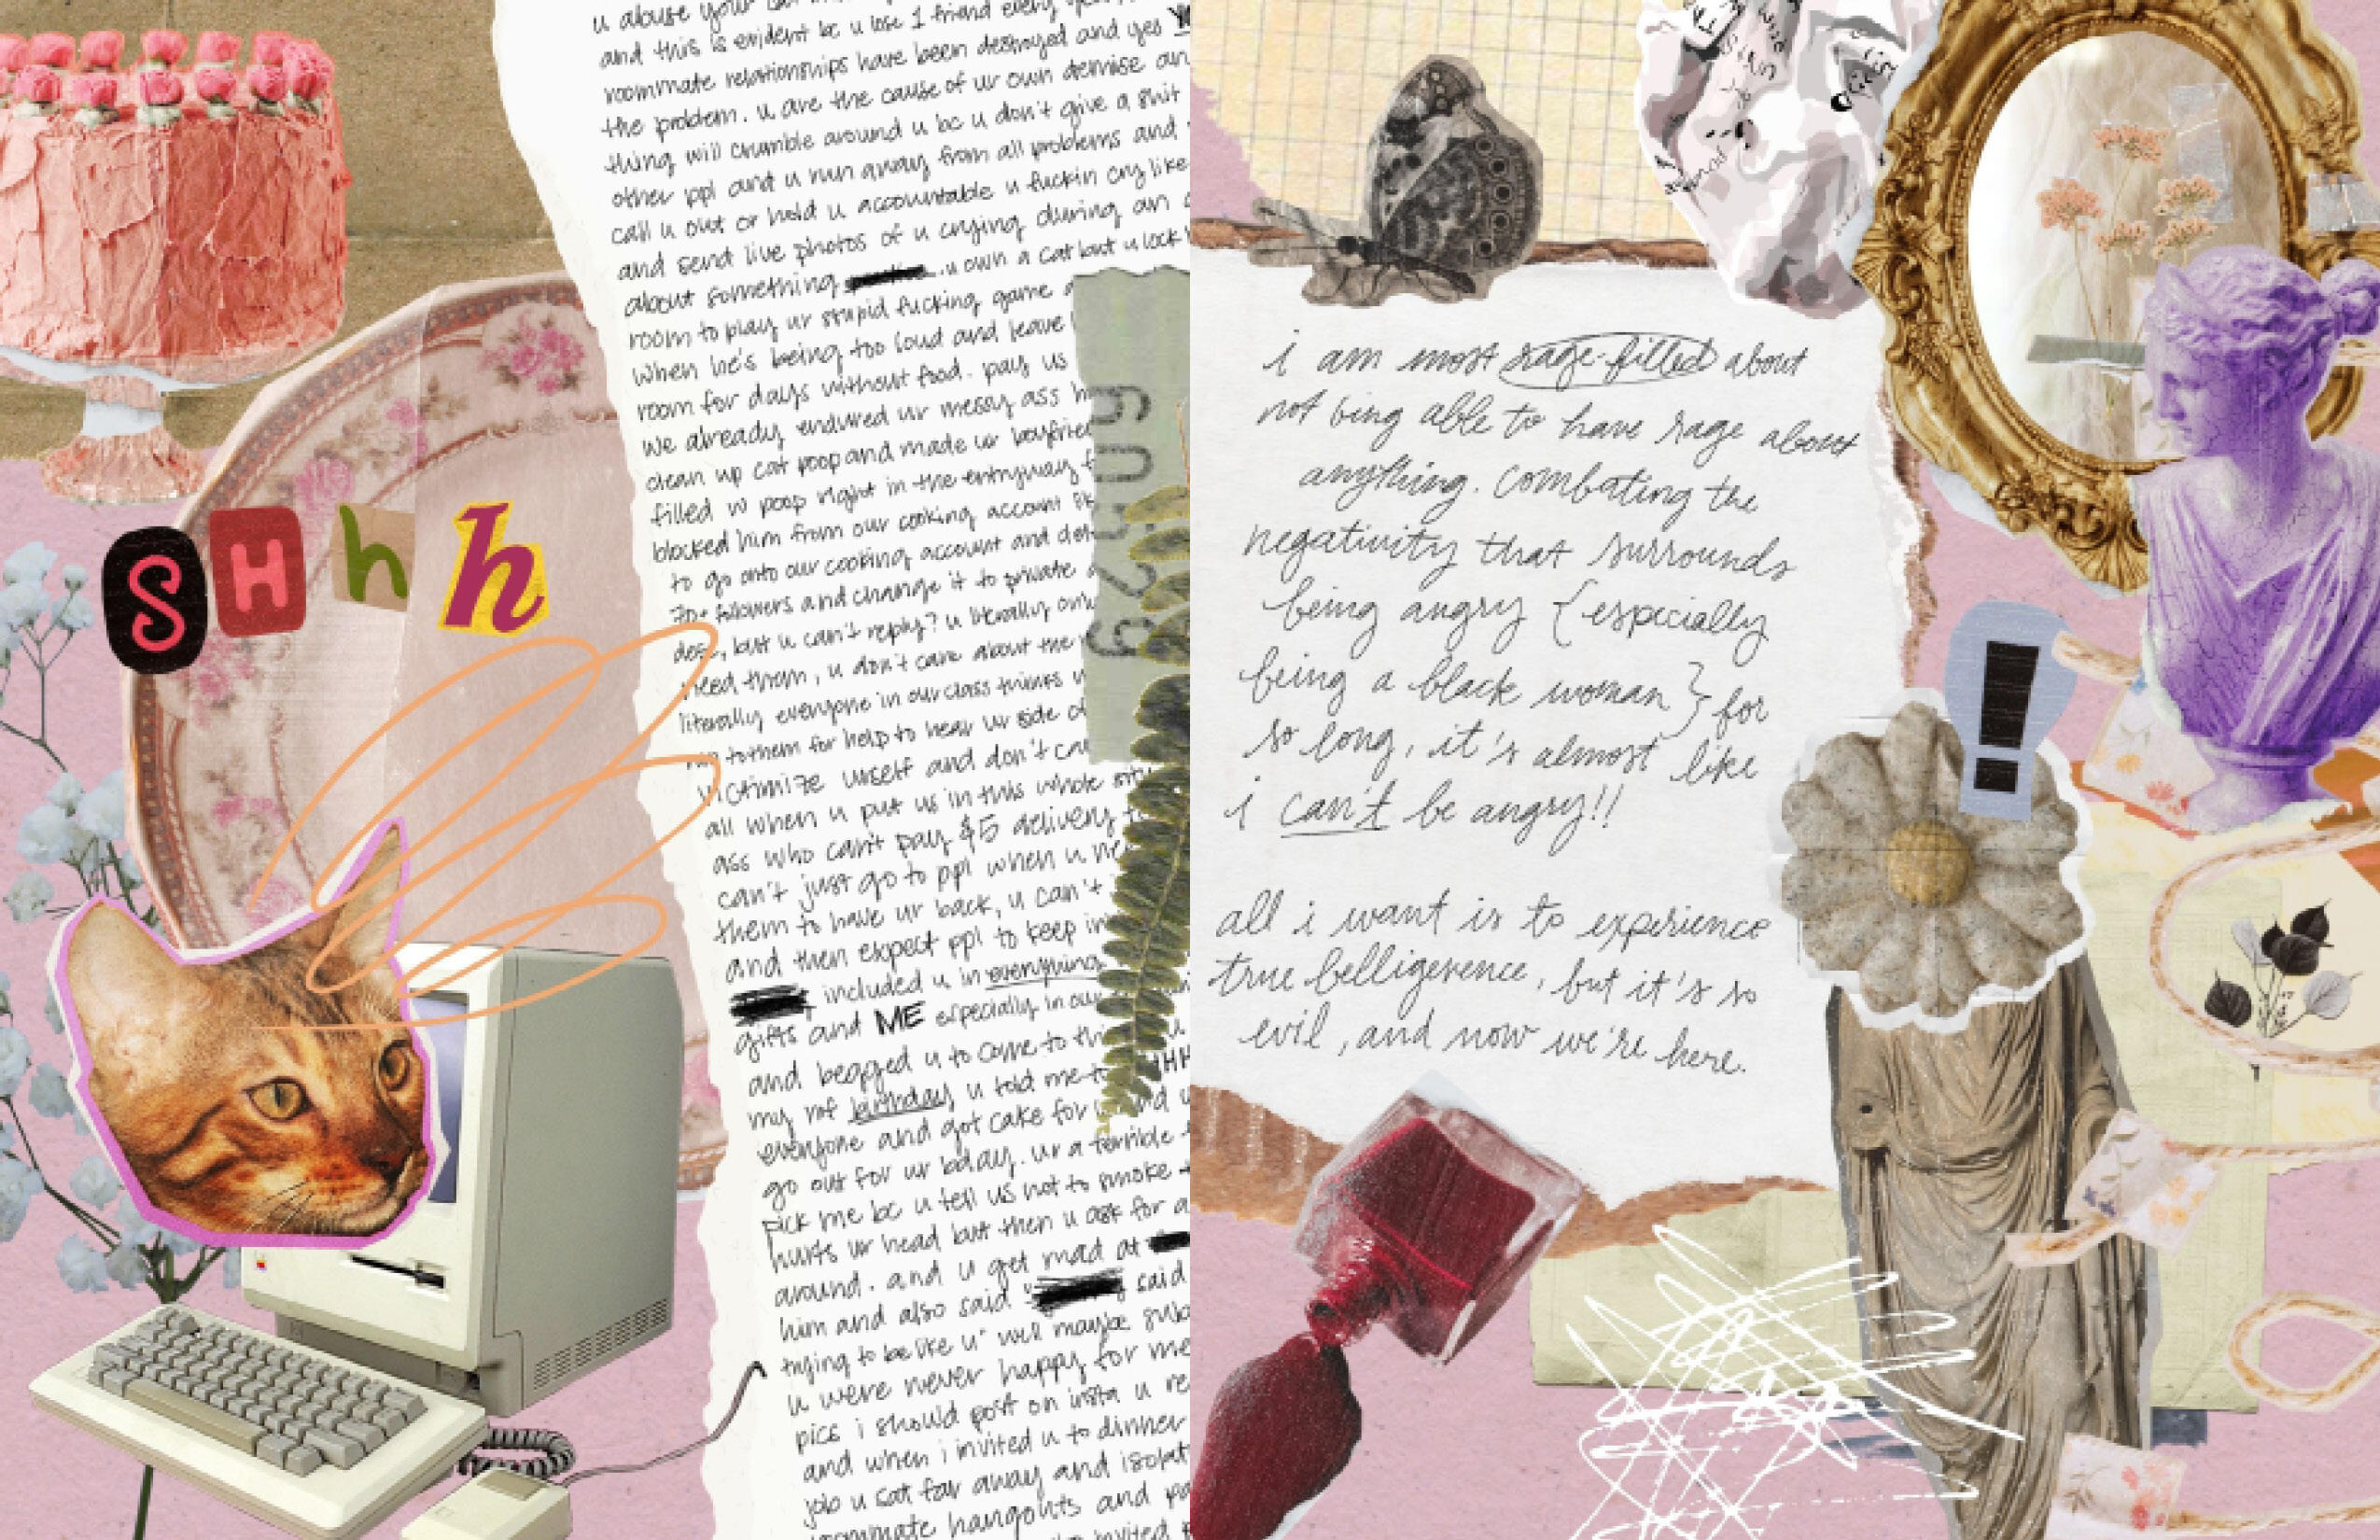 u abuse your
and this is evident bc u lose 1 friend every year
roommate relationships have been destroyed and yes
the problem. u are the cause of ur own demise an
thing will crumble around u bc u don't give a shit
other ppl and u run away from all problems and
call u out or hold u accountable u fuckin cry like
and send live photos of u crying during an
about something u own a cat but u lock
room to play ur stupid fucking game
when he's being too loud and leave
room for days without food. pay us
we already endured ur messy ass h
clean up cat poop and made ur boyfrie
filled w poop right in the entryway f
blocked him from our cooking account lik
to go onto our cooking account and del
70+ followers and change it to private
dese, but u can't reply? u literally on
need them, u don't care about the
literally everyone in our class thinks u
to them for help to hear ur side of
victimize urself and don't ca
all when u put us in this whole sit
ass who can't pay $5 delivery f
can't just go to ppl when u ne
them to have ur back, u can't
and then expect ppl to keep in
included u in everything
gifts and ME especially in our
and begged u to come to thi
my rof birthday u told me to
everyone and got cake for
go out for ur bday. ur a terrible
pick me bc u tell us not to smoke
hurts ur head but then u ask for a
around. and u get mad at
him and also said " said
trying to be like u" well maybe sub
u were never happy for me
pics i should post on insta u re
and when i invited u to dinner
job u sat far away and isolat
roommate hangouts and pa
invited
shhh
62309
i am most rage-filled about
not being able to have rage about
anything. combating the
negativity that surrounds
being angry {especially
being a black woman} for
so long, it's almost like
i can't be angry!!
all i want is to experience
true belligerence, but it's so
evil, and now we're here.
!